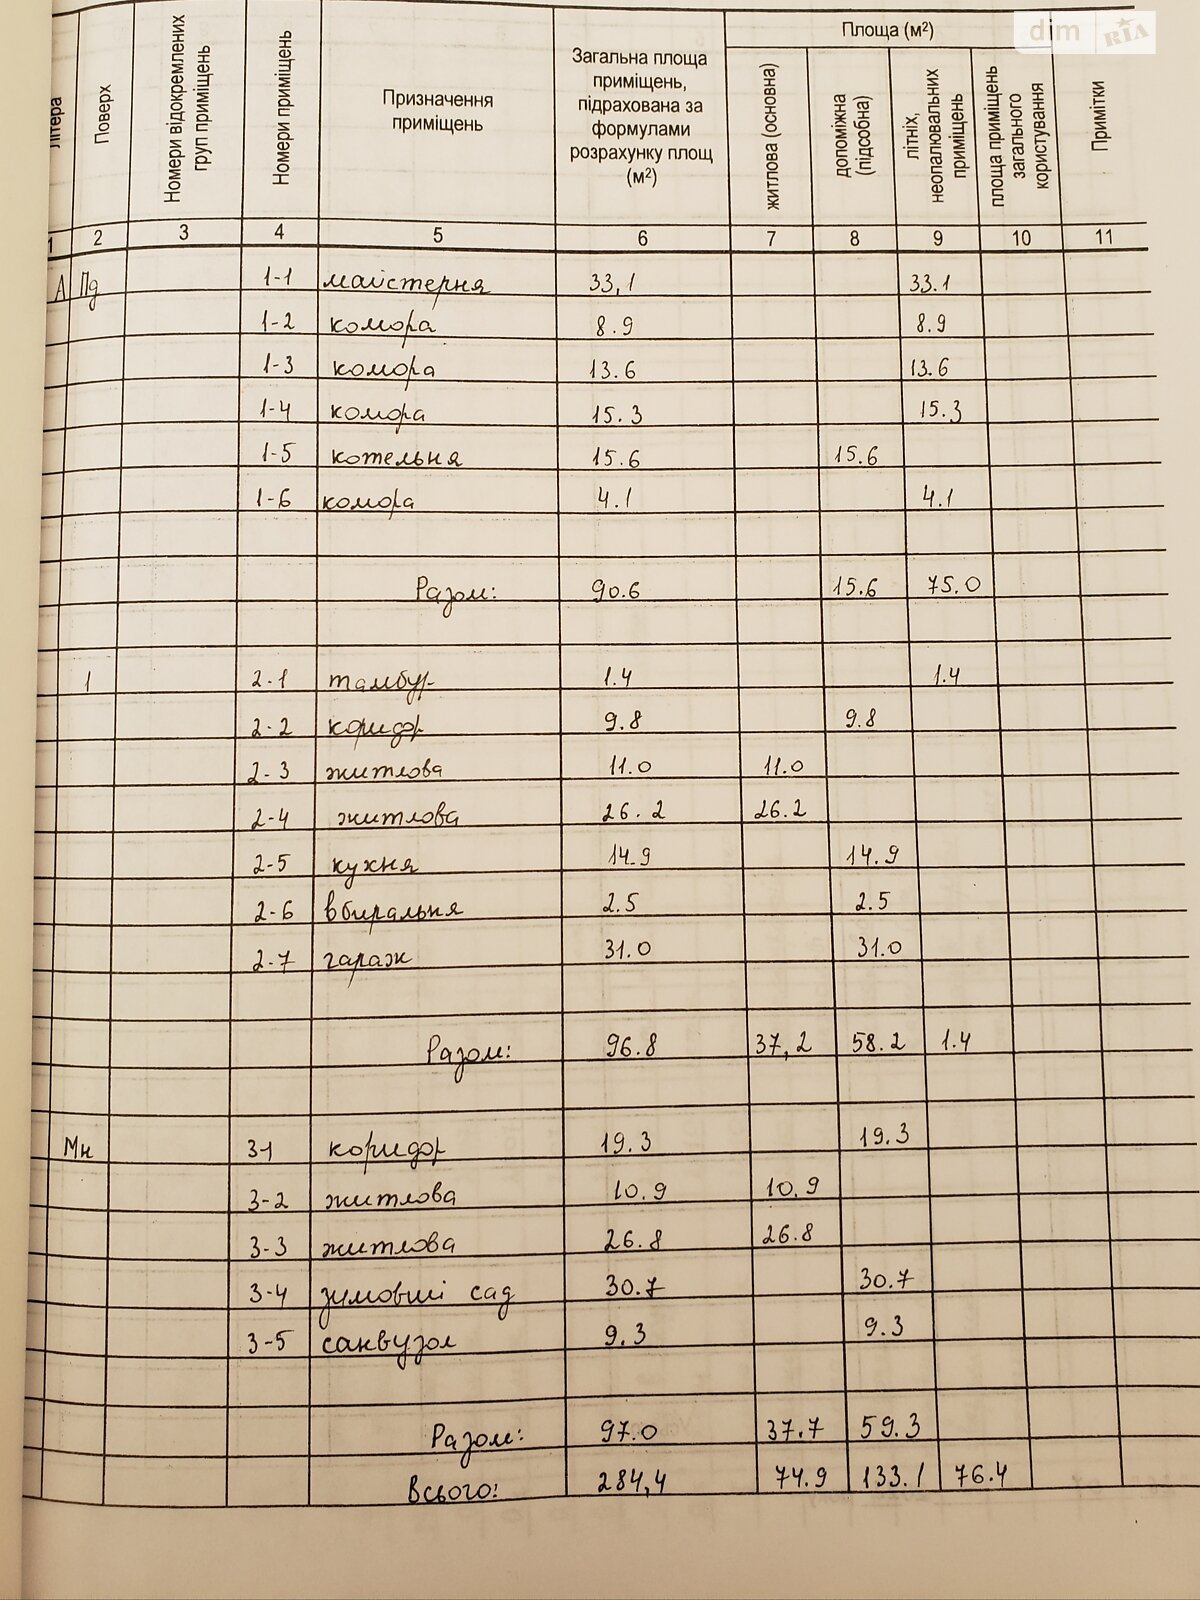 dim RIA
Площа (м²)
Літера
Поверх
Номери відокремлених груп приміщень
Номери приміщень
Призначення приміщень
Загальна площа приміщень, підрахована за формулами розрахунку площ (м²)
житлова (основна)
допоміжна (підсобна)
літніх, неопалювальних приміщень
площа приміщень загального користування
Примітки
1 2 3 4 5 6 7 8 9 10 11
А Пд 1-1 майстерня 33,1 33.1
1-2 комора 8.9 8.9
1-3 комора 13.6 13.6
1-4 комора 15.3 15.3
1-5 котельня 15.6 15.6
1-6 комора 4.1 4.1
Разом: 90.6 15.6 75.0
1 2-1 тамбур 1.4 1.4
2-2 коридор 9.8 9.8
2-3 житлова 11.0 11.0
2-4 житлова 26.2 26.2
2-5 кухня 14.9 14.9
2-6 вбиральня 2.5 2.5
2-7 гараж 31.0 31.0
Разом: 96.8 37,2 58.2 1.4
Мн 3-1 коридор 19.3 19.3
3-2 житлова 10.9 10.9
3-3 житлова 26.8 26.8
3-4 зимовий сад 30.7 30.7
3-5 санвузол 9.3 9.3
Разом: 97.0 37.7 59.3
Всього: 284,4 74.9 133.1 76.4